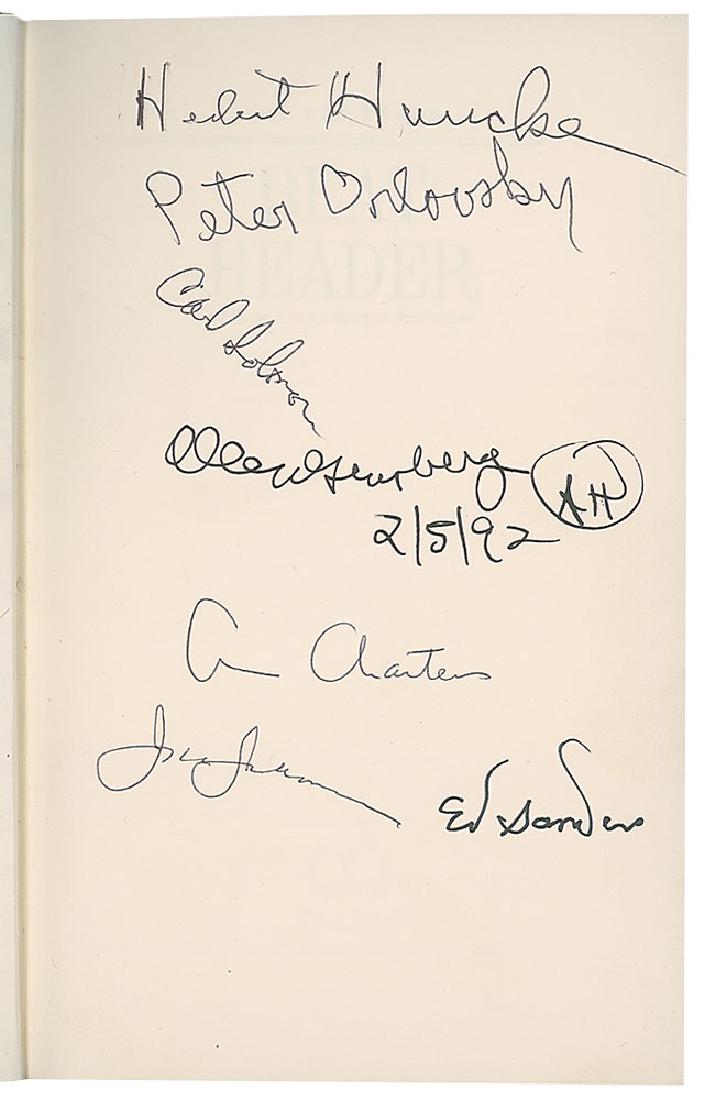 Herbert Huncke
Peter Orlovsky
BEAT
READER
Carl Solomon
Allen Ginsberg AH
2/5/92
Ann Charters
Ed Sanders